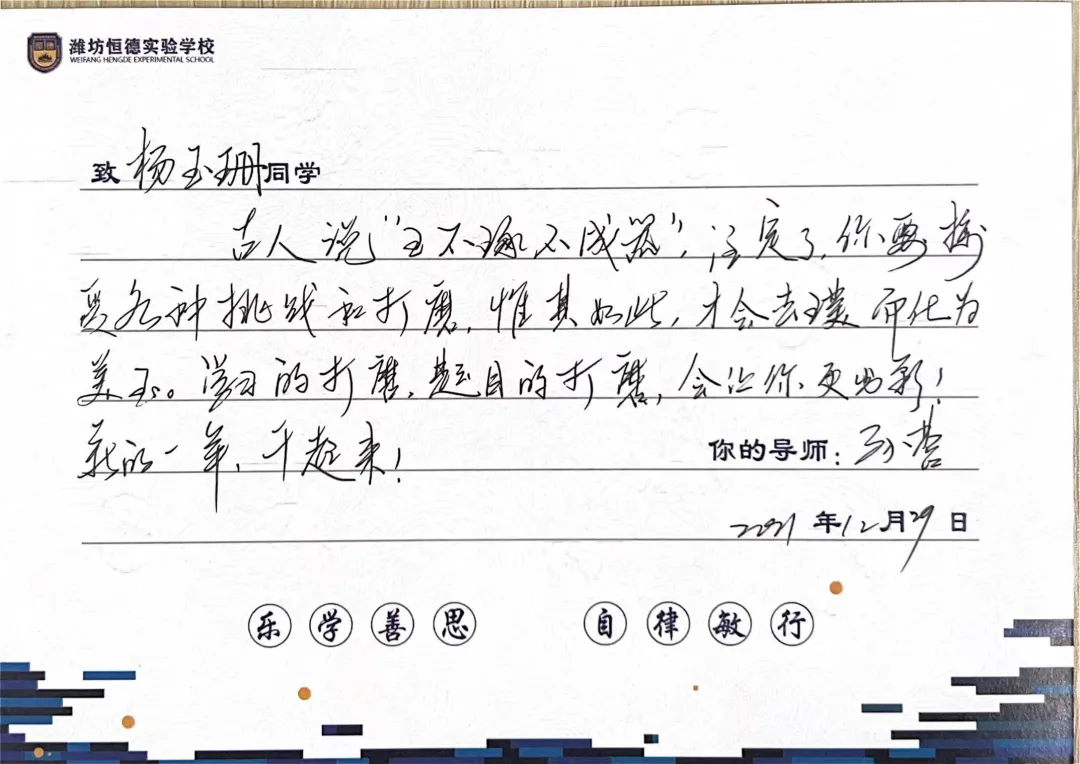 潍坊恒德实验学校
WEIFANG HENGDE EXPERIMENTAL SCHOOL
致 杨玉珊同学
古人说“玉不琢不成器”,注定了,你要接
受各种挑战和打磨,惟其如此,才会去璞而化为
美玉。学习的打磨,题目的打磨,会让你更出彩!
新的一年,干起来!
你的导师:孙营
2021 年12月29日
乐学善思 自律敏行